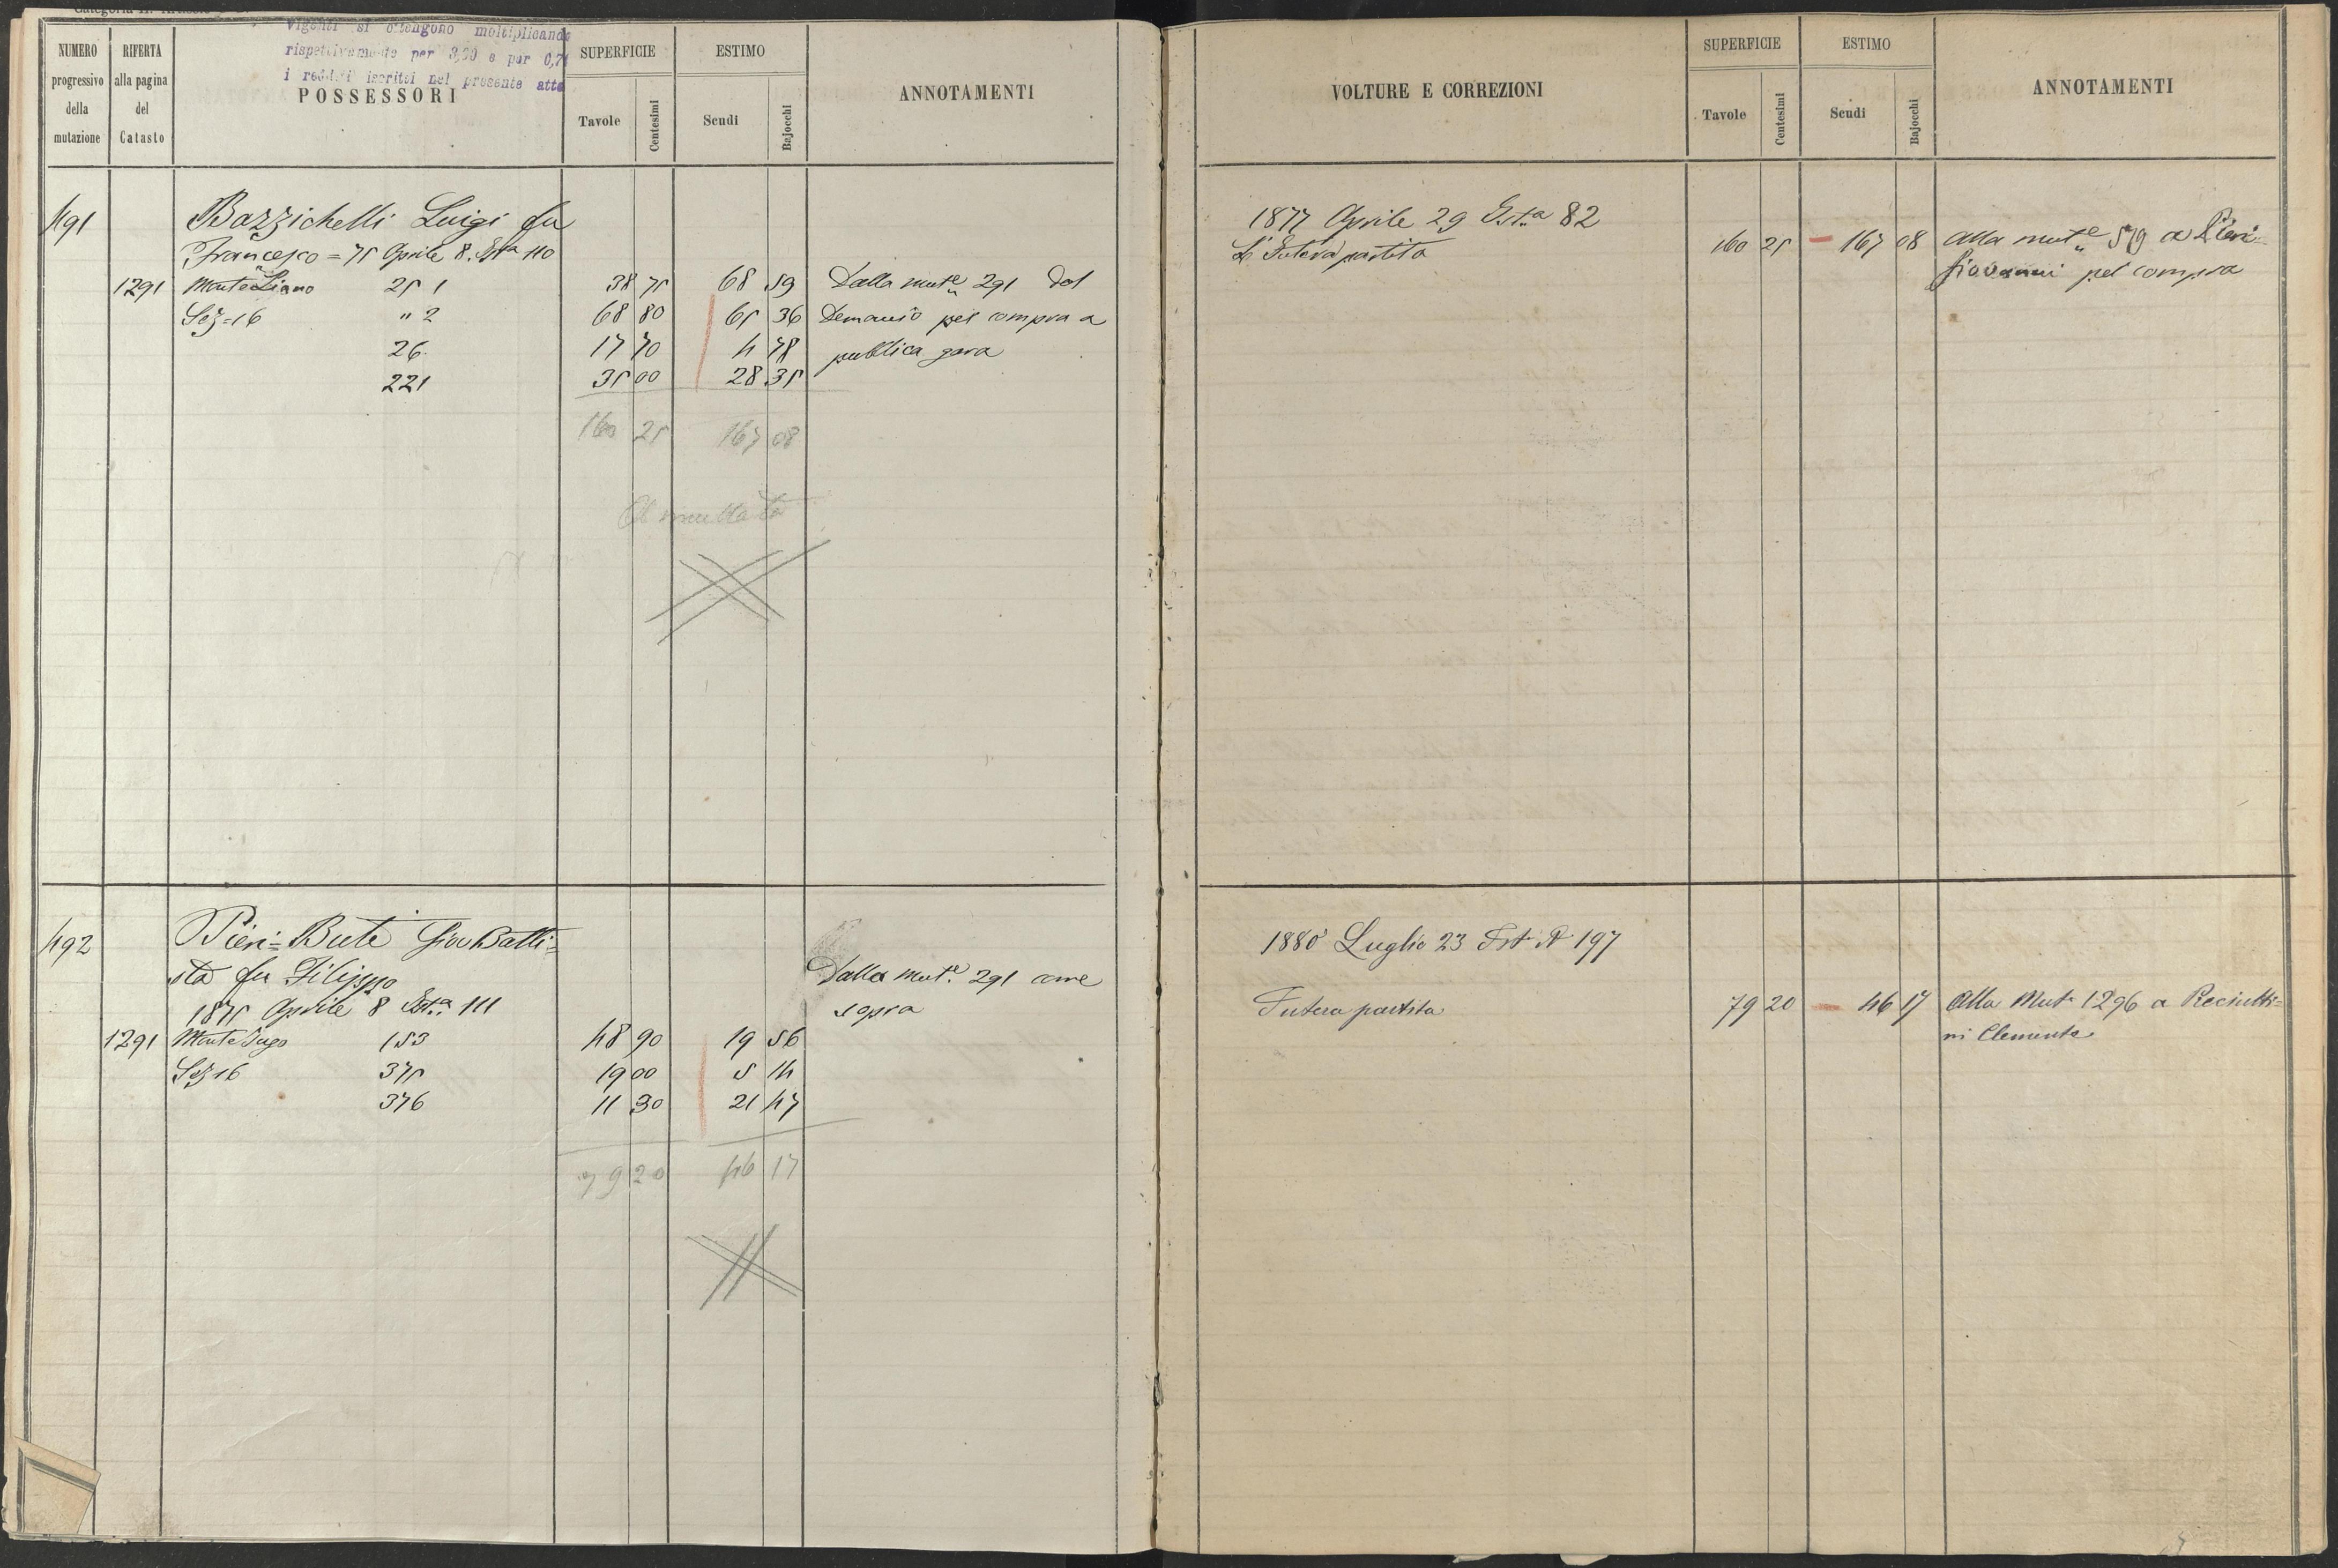 vigenti si ottengono moltiplicando
rispettivamente per 3,20 e per 0,71
i redditi iscritti nel presente atto
NUMERO progressivo della mutazione
RIFERTA alla pagina del Catasto
POSSESSORI
SUPERFICIE
Tavole
Centesimi
ESTIMO
Scudi
Bajocchi
ANNOTAMENTI
491 Bazzichelli Luigi fu
Francesco = 75 Aprile 8. Ista 110
1291 Monte 25 1 38 75 68 59 Dalla mute 291 dal
Sez = 16 " 2 68 80 65 36 Demanio per compra a
26 17 70 4 78 pubblica gara
221 35 00 28 35
160 25 167 08
492 Pieri = Buti Gio Batti=
sta fu Filippo
1875 Aprile 8 Ista 111
Dalla Mute. 291 come
sopra
1291 Monte Jugo 153 48 90 19 56
Sez 16 375 19 00 5 14
376 11 30 21 47
79 20 46 17
VOLTURE E CORREZIONI
SUPERFICIE
Tavole
Centesimi
ESTIMO
Scudi
Bajocchi
ANNOTAMENTI
1877 Aprile 29 Ista 82
L'Intera partita 160 25 — 167 08 Alla mute 579 a Pieri=
Giovanni per compra
1880 Luglio 23 Ist. N 197
Intera partita 79 20 — 46 17 Alla Mut. 1296 a Reciutti=
ni Clemente